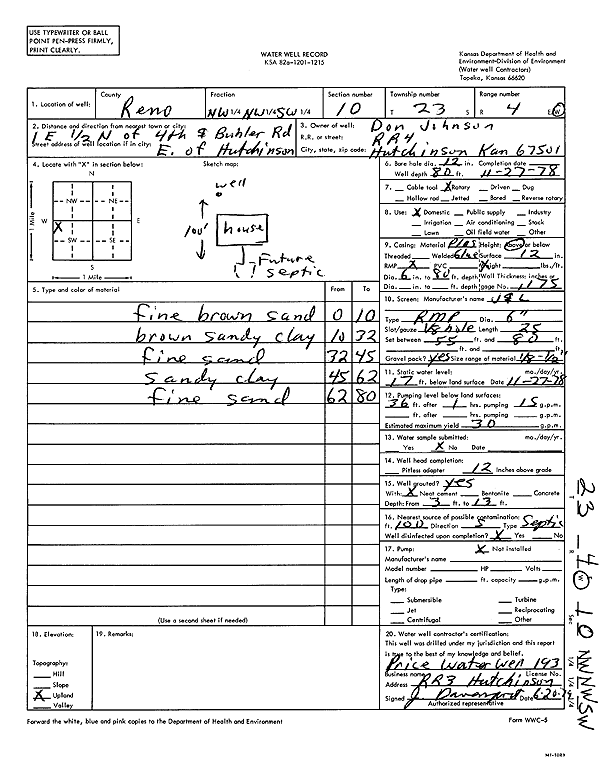 USE TYPEWRITER OR BALL
POINT PEN-PRESS FIRMLY,
PRINT CLEARLY.
WATER WELL RECORD
KSA 82a-1201-1215
Kansas Department of Health and
Environment-Division of Environment
(Water well Contractors)
Topeka, Kansas 66620
1. Location of well: County Reno Fraction NW 1/4 NW 1/4 SW 1/4 Section number 10 Township number T 23 S Range number R 4 E/W
2. Distance and direction from nearest town or city: 1 E 1/2 N of 4th & Buhler Rd
Street address of well location if in city: E. of Hutchinson
3. Owner of well: Don Johnson
R.R. or street: RR4
City, state, zip code: Hutchinson Kan 67501
4. Locate with "X" in section below: Sketch map:
N
NW NE
W X E
SW SE
S
1 Mile
1 Mile
well
100'
house
Future
septic
6. Bore hole dia. 12 in. Completion date
Well depth 80 ft. 11-27-78
7. Cable tool X Rotary Driven Dug
Hollow rod Jetted Bored Reverse rotary
8. Use: X Domestic Public supply Industry
Irrigation Air conditioning Stock
Lawn Oil field water Other
9. Casing: Material Plas Height: Above or below
Threaded Welded glue Surface 12 in.
RMP X PVC Weight lbs./ft.
Dia. 6 in. to 80 ft. depth Wall Thickness: inches or
Dia. in. to ft. depth gage No. .175
5. Type and color of material From To
fine brown sand 0 10
brown sandy clay 10 32
fine sand 32 45
sandy clay 45 62
fine sand 62 80
(Use a second sheet if needed)
10. Screen: Manufacturer's name
Type RMP Dia. 6"
Slot/gauze 1/8 hole Length 25
Set between 55 ft. and 80 ft.
ft. and ft.
Gravel pack? yes Size range of material 1/8-1/2"
11. Static water level: mo./day/yr.
17 ft. below land surface Date 11-27-78
12. Pumping level below land surfaces:
36 ft. after 1 hrs. pumping 15 g.p.m.
ft. after hrs. pumping g.p.m.
Estimated maximum yield 30 g.p.m.
13. Water sample submitted: mo./day/yr.
Yes X No Date
14. Well head completion:
Pitless adapter 12 Inches above grade
15. Well grouted? yes
With: X Neat cement Bentonite Concrete
Depth: From 3 ft. to 13 ft.
16. Nearest source of possible contamination:
ft. 100 Direction S Type Septic
Well disinfected upon completion? X Yes No
17. Pump: X Not installed
Manufacturer's name
Model number HP Volts
Length of drop pipe ft. capacity g.p.m.
Type:
Submersible Turbine
Jet Reciprocating
Centrifugal Other
18. Elevation:
Topography:
Hill
Slope
X Upland
Valley
19. Remarks:
20. Water well contractor's certification:
This well was drilled under my jurisdiction and this report
is true to the best of my knowledge and belief.
Price Water Well 193
Business name License No.
Address RR3 Hutchinson
Signed J. Davenport Date
Authorized representative
Forward the white, blue and pink copies to the Department of Health and Environment
Form WWC-5
T 23 - R 4 W 10 Sec
NW NW SW
1/4 1/4 1/4